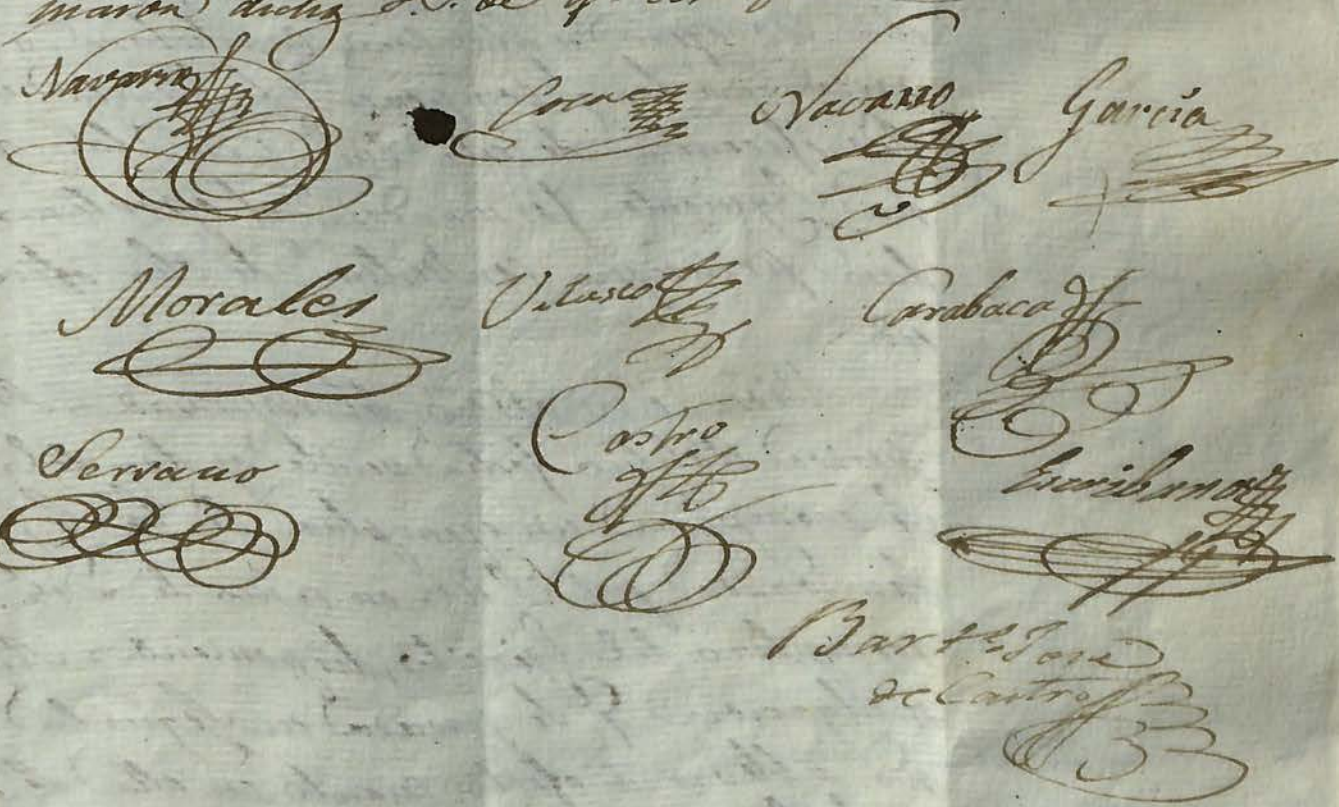 maron dichos S.S. de q.
Navarro Coca Navarro García
Morales Velasco Carabaca
Serrano Castro Escribano
Bar.me José
de Castro